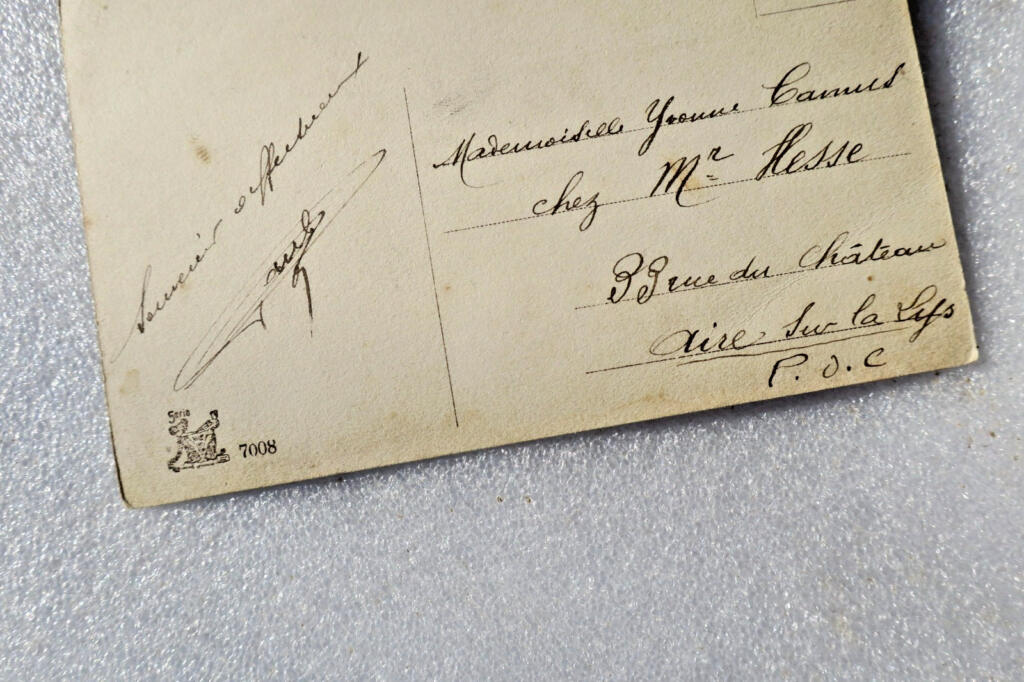 Souvenir affectueux
Mademoiselle Yvonne Camus
chez Mr Hesse
33 rue du Château
Aire Sur la Lys
P. d. C
Serie
7008